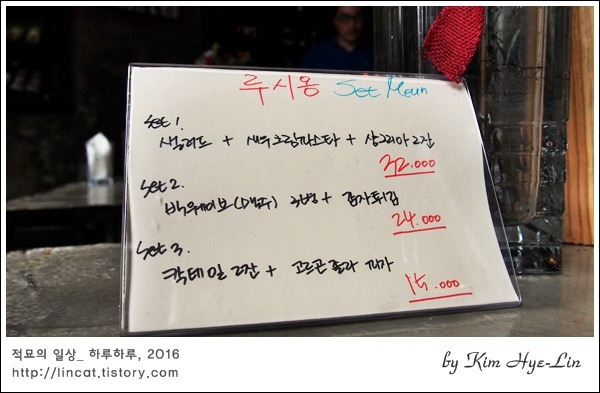 루시옹 Set Meun
Set 1.
샐러드 + 새우크림파스타 + 상그리아 2잔
32.000
Set 2.
빅웨이브(맥주) 2병 + 감자튀김
24.000
Set 3.
칵테일 2잔 + 고르곤졸라 피자
15.000
적묘의 일상_ 하루하루, 2016
http://lincat.tistory.com
by Kim Hye-Lin